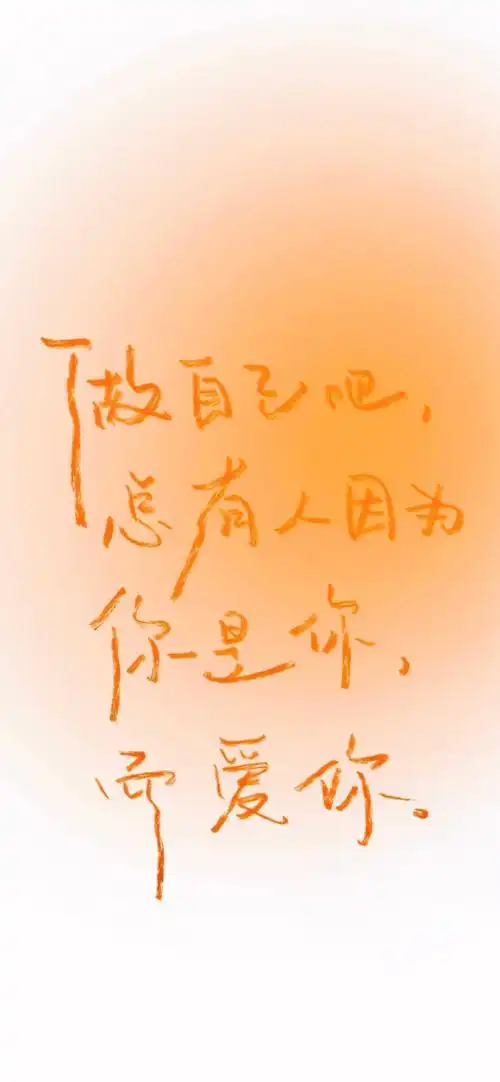 做自己吧，
总有人因为
你是你，
而爱你。